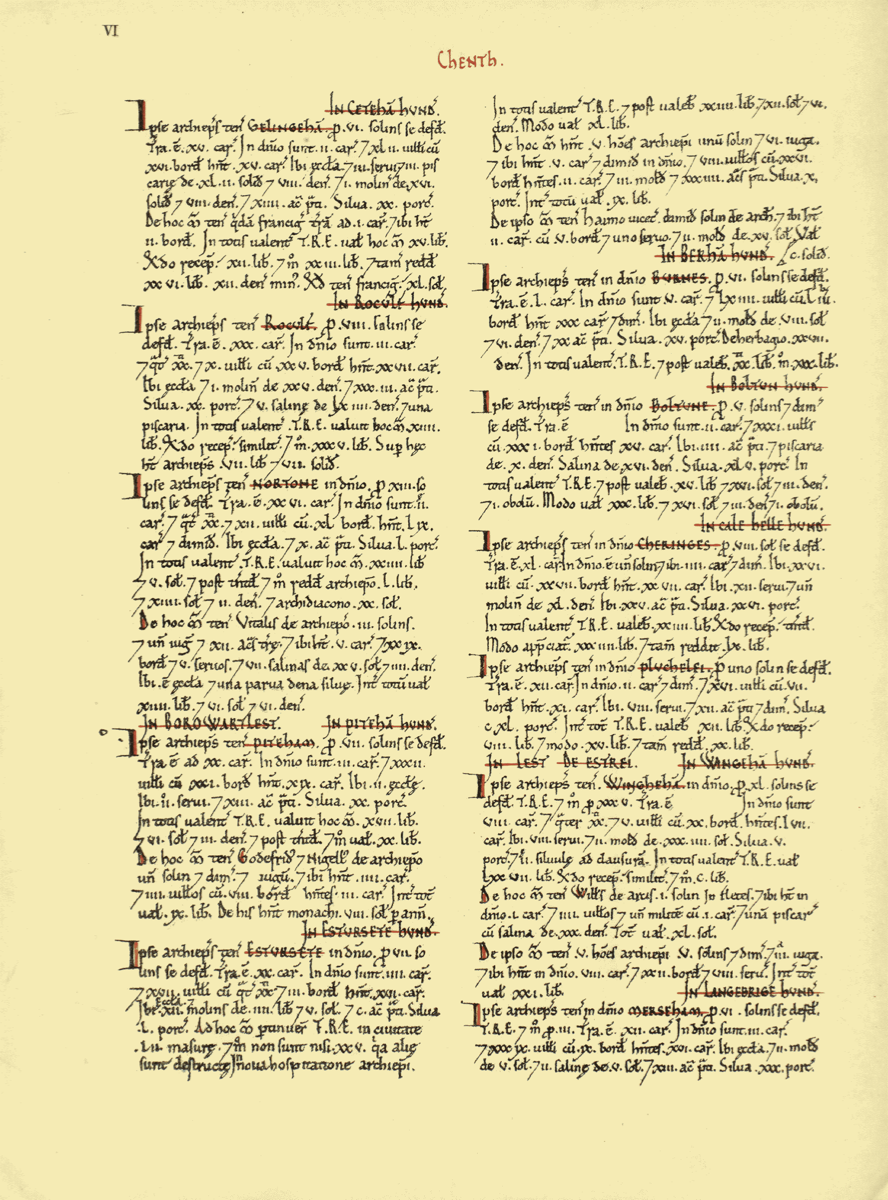 VI
Chenth.
In Ceteha hund.
Ipse archieps ten Gelingehā. p. vi. solins se defđ.
Tra. ē. xv. car. In dnio sunt. ii. car. 7 xl ii. uilli cū
xvi. bord hnt. xv. car. Ibi eccla. 7 iii. serui 7 iii. pis
carie de. xl. ii. solid 7 viii. den. 7 i. molin de. xvi.
solid 7 viii. den. 7 xiiii. ac pti. Silua. xx. porc.
De hoc ten qda francig tra ad. i. car. 7 ibi ht
ii. bord. In totis ualent T.R.E. ual hoc xv. lib.
Xdo recep. xii. lib. 7 m xxiii. lib. 7 tam redd
xxvi. lib. xii. den min. Xd ten francig. xl. sol.
In Roculf hund.
Ipse archieps ten Roculf. p. viii. solins se
defđ. Tra. ē. xxx. car. In dnio sunt. iii. car.
7 qt xx. 7 x. uilli cū xxv. bord hnt. xxvii. car.
Ibi eccla 7 i. molin de xxv. den. 7 xxxiii. ac pti.
Silua. xx. porc. 7 v. saline de lxiiii. den. 7 una
piscaria. In totis ualent T.R.E. ualuit hoc xiiii.
lib. Xdo recep. similit. 7 m. xxxv. lib. Sup hec
ht archieps. vii. lib 7 vii. solid.
Ipse archieps ten Nortone in dnio. p xiii. so
lins se defđ. Tra. ē. xxvi. car. In dnio sunt. ii.
car. 7 qt xx. 7 xii. uilli cū. xl bord hnt. lix.
car 7 dimid. Ibi eccla. 7 x. ac pti. Silua. l. porc.
In totis ualent T.R.E. ualuit hoc xxiiii. lib
7 v. sol. 7 post tntđ. 7 m redd archiepo. l. lib.
7 xiiii. sol 7 ii. den. 7 archidiacono. xx. sol.
De hoc ten Vitalis de archiepo. iii. solins.
7 un iug 7 xii. acs tre. 7 ibi ht v. car. 7 xxix.
bord 7 v. seruos. 7 vii. salinas de. xxv. sol 7 iiii. den.
Ibi. ē eccla 7 una parua dena silue. Int totu ual
xiiii. lib. 7 vi. sol 7 vi. den.
In Borowart lest. In Piteha hund.
Ipse archieps ten Piteham. p. vii. solins se defđ.
Tra ē ad xx. car. In dnio sunt. iii. car. 7 xxxii.
uilli cū xxi. bord hnt. xix. car. Ibi. ii. eccle.
Ibi. ii. serui. 7 xiii. ac pti. Silua. xx. porc.
In totis ualent T.R.E. ualuit hoc. xvii. lib.
7 vi. sol. 7 iii. den. 7 post tntđ. 7 m ual. xx. lib.
De hoc ten Godefrid 7 Nigell de archiepo
un solin 7 dim. 7 iugu. 7 ibi hnt. iii. car.
7 iiii. uillos cū. viii. bord hntes. iii. car. Int tot
ual. ix. lib. De his hnt monachi. viii. sol p ann.
In Estursete hund.
Ipse archieps ten Estursete in dnio. p vii. so
lins se defđ. Tra. ē. xx. car. In dnio sunt. iii. car.
7 xxvii. uilli cū qt xx 7 iii. bord hnt. xxvi. car.
Ibi eccla 7 xii. molins de. iiii. lib 7 v. sol. 7 c. ac pti. Silua
.l. porc. Ad hoc ptinuer T.R.E. in ciuitate
.lii. masure. 7 m non sunt nisi. xxv. qa alie
sunt destructe in noua hospitatione archiepi.
In totis ualent T.R.E. 7 post ualeb xxiiii. lib. 7 xii. sol 7 vi.
den. Modo ual xl. lib.
De hoc hnt v. hoes archiepi unu solin 7 vi. iuga.
7 ibi hnt. v. car 7 dimid in dnio. 7 viii. uillos cū. xxvi.
bord hntes. ii. car. 7 iii. mold 7 xxxiiii. acs pti. Silua. x.
porc. Int totu ual ix. lib.
De ipso ten Haimo uicec dimid solin de arch. 7 ibi ht
ii. car. cū v. bord 7 uno seruo. 7 ii. mold de. xv. sol. Val
c. solid.
In Berha hund.
Ipse archieps ten in dnio Burnes. p. vi. solins se defđ.
Tra. ē. l. car. In dnio sunt. v. car. 7 lxiiii. uilli cū. liii.
bord hnt xxx car 7 dim. Ibi eccla 7 ii. mold de. viii. sol
7 vi. den. 7 xx ac pti. Silua. xv. porc. De herbagio. xxvii.
den. In totis ualent T.R.E. 7 post ualeb. xx. lib. m xxx. lib.
In Boltun hund.
Ipse archieps ten in dnio Boltune. p. v. solins 7 dim
se defđ. Tra ē In dnio sunt. ii. car. 7 xxxi. uillis
cū. xxxi. bord hntes xv. car. Ibi. iiii. ac pti. 7 piscaria
de. x. den. Salina de. xvi. den. Silua. xlv. porc. In
totis ualent T.R.E. 7 post ualeb. xxx. lib. 7 xvi. sol 7 iii. den.
7 i. obolu. Modo ual xxx. lib. 7 xvi. sol 7 iii. den 7 i. obolu.
In Calehelle hund.
Ipse archieps ten in dnio Cheringes. p. viii. sol se defđ.
Tra. ē. xl. car. In dnio. ē un solin 7 ibi. iiii. car 7 dim. Ibi. xxvi.
uilli cū. xxvii. bord hnt. xxvii. car. Ibi. xii. serui 7 un
molin de xl. den. Ibi. xxv. ac pti. Silua. xxvi. porc.
In totis ualent T.R.E. ualeb. xxiiii. lib. Xdo recep. tntđ.
Modo appciat. xxxiiii. lib. 7 tam reddit. lx. lib.
Ipse archieps ten in dnio Pluchelei. p uno solin se defđ.
Tra. ē. xii. car. In dnio. ii. car 7 dim. 7 xvi. uilli cū. vii.
bord hnt. xi. car. Ibi. viii. serui. 7 xii. ac pti 7 dim. Silua
cxl. porc. Int tot T.R.E. ualeb xii. lib. Xdo recep.
viii. lib. 7 modo. xv. lib. 7 tam redd. xx. lib.
In Lest de Estrei. In Wingeha hund.
Ipse archieps ten. Wingheha. in dnio. p. xl. solins se
defđ. T.R.E. 7 m p xxxv. Tra. ē In dnio sunt
viii. car. 7 qter xx. 7 v. uilli cū. xx. bord. hntes. lvii.
car. Ibi. viii. serui. 7 ii. mold de. xxxiiii. sol. Silua. v.
porc. 7 ii. siluule ad clausura. In totis ualent T.R.E. ual
lxxvii. lib. Xdo recep. similit. 7 m. c. lib.
De hoc ten Wills de arcis. i. solin In fletes. 7 ibi ht in
dnio. i. car. 7 iiii. uillos 7 un milite cū. i. car. 7 una piscar
cū salina de. xxx. den. Tot ual. xl. sol.
De ipso ten. v. hoes archiepi v. solins 7 dim. 7 iii. iuga.
7 ibi hnt in dnio. viii. car. 7 xxii. bord 7 viii. seru. Int tot
ual xxi. lib.
In Langebrige hund.
Ipse archieps ten in dnio Merseham. p vi. solins se defđ.
T.R.E. 7 m p. iii. Tra. ē. xii. car. In dnio sunt. iii. car.
7 xxxix. uilli cū. ix. bord hntes. xvi. car. Ibi eccla. 7 ii. mold
de. v. sol. 7 ii. saline de. v. sol. 7 xiii. ac pti. Silua. xxx. porc.